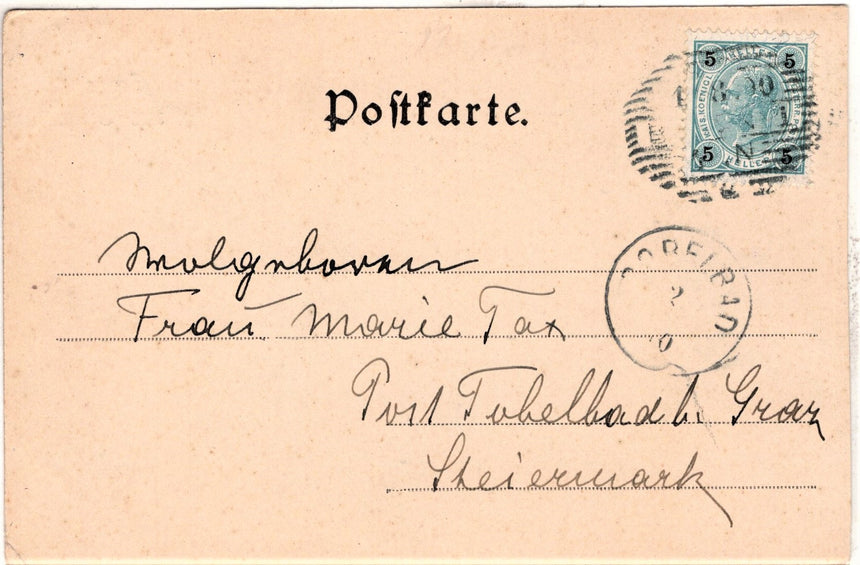 Postkarte.
5 5
KAIS. KOENIGL.
5 5
HELLER
Wolgeboren
Frau Marie Tax
Post Tobelbad b. Graz
Steiermark
DOBELBAD
2